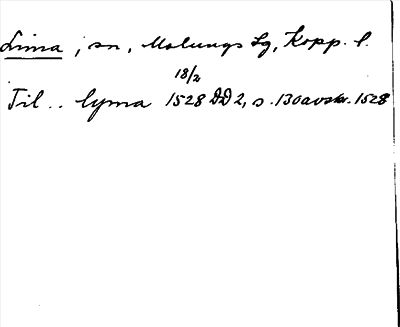 Lima, sn, Malungs tg, Kopp. l.
18/2
Til .. lyma 1528 DD 2, s. 130 avskr. 1528